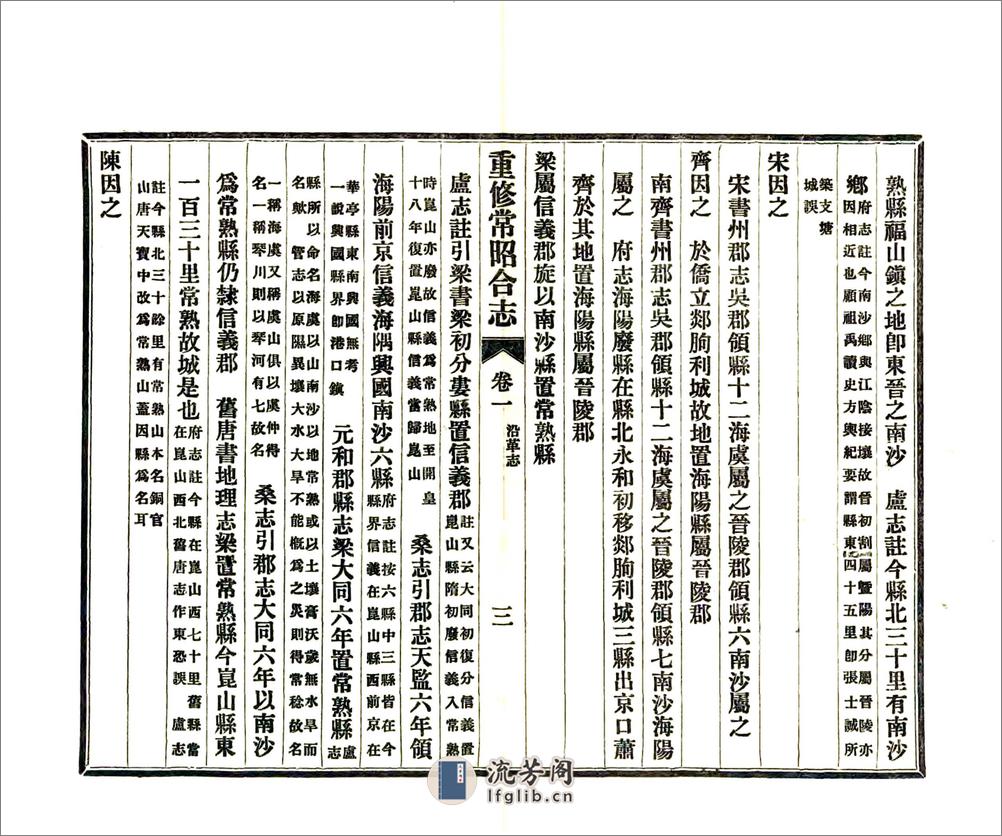 熟縣福山鎮之地卽東晉之南沙　盧志註今縣北三十里有南沙
鄉
府志註今南沙鄉與江陰接壤故晉初割屬曁陽其分屬晉陵亦
因相近也顧祖禹讀史方輿紀要謂縣東四十五里卽張士誠所
築支塘
城誤
宋因之
宋書州郡志吳郡領縣十二海虞屬之晉陵郡領縣六南沙屬之
齊因之　於僑立郯朐利城故地置海陽縣屬晉陵郡
南齊書州郡志吳郡領縣十二海虞屬之晉陵郡領縣七南沙海陽
屬之　府志海陽廢縣在縣北永和初移郯朐利城三縣出京口蕭
齊於其地置海陽縣屬晉陵郡
梁屬信義郡旋以南沙縣置常熟縣
重修常昭合志　卷一　沿革志　三
盧志註引梁書梁初分婁縣置信義郡
註又云大同初復分信義置
崑山縣隋初廢信義入常熟
時崑山亦廢故信義爲常熟地至開皇
十八年復置崑山縣信義當歸崑山
桑志引郡志天監六年領
海陽前京信義海隅興國南沙六縣
府志註按六縣中三縣皆在今
縣界信義在崑山縣西前京在
華亭縣東南興國無考
一說興國縣界卽港口鎮
元和郡縣志梁大同六年置常熟縣
盧
志
縣所以命名海虞以山南沙以地常熟或以土壤膏沃歲無水旱而
名歟　管志以原隰異壤大水大旱不能槪爲之災則得常稔故名
一稱海虞又稱虞山俱以虞仲得
名一稱琴川則以琴河有七故名
桑志引郡志大同六年以南沙
爲常熟縣仍隸信義郡　舊唐書地理志梁置常熟縣今崑山縣東
一百三十里常熟故城是也
府志註今縣在崑山西七十里舊縣當
在崑山西北舊唐志作東恐誤　盧志
註今縣北三十餘里有常熟山本名銅官
山唐天寶中改爲常熟山蓋因縣爲名耳
陳因之
流芳阁
lfglib.cn